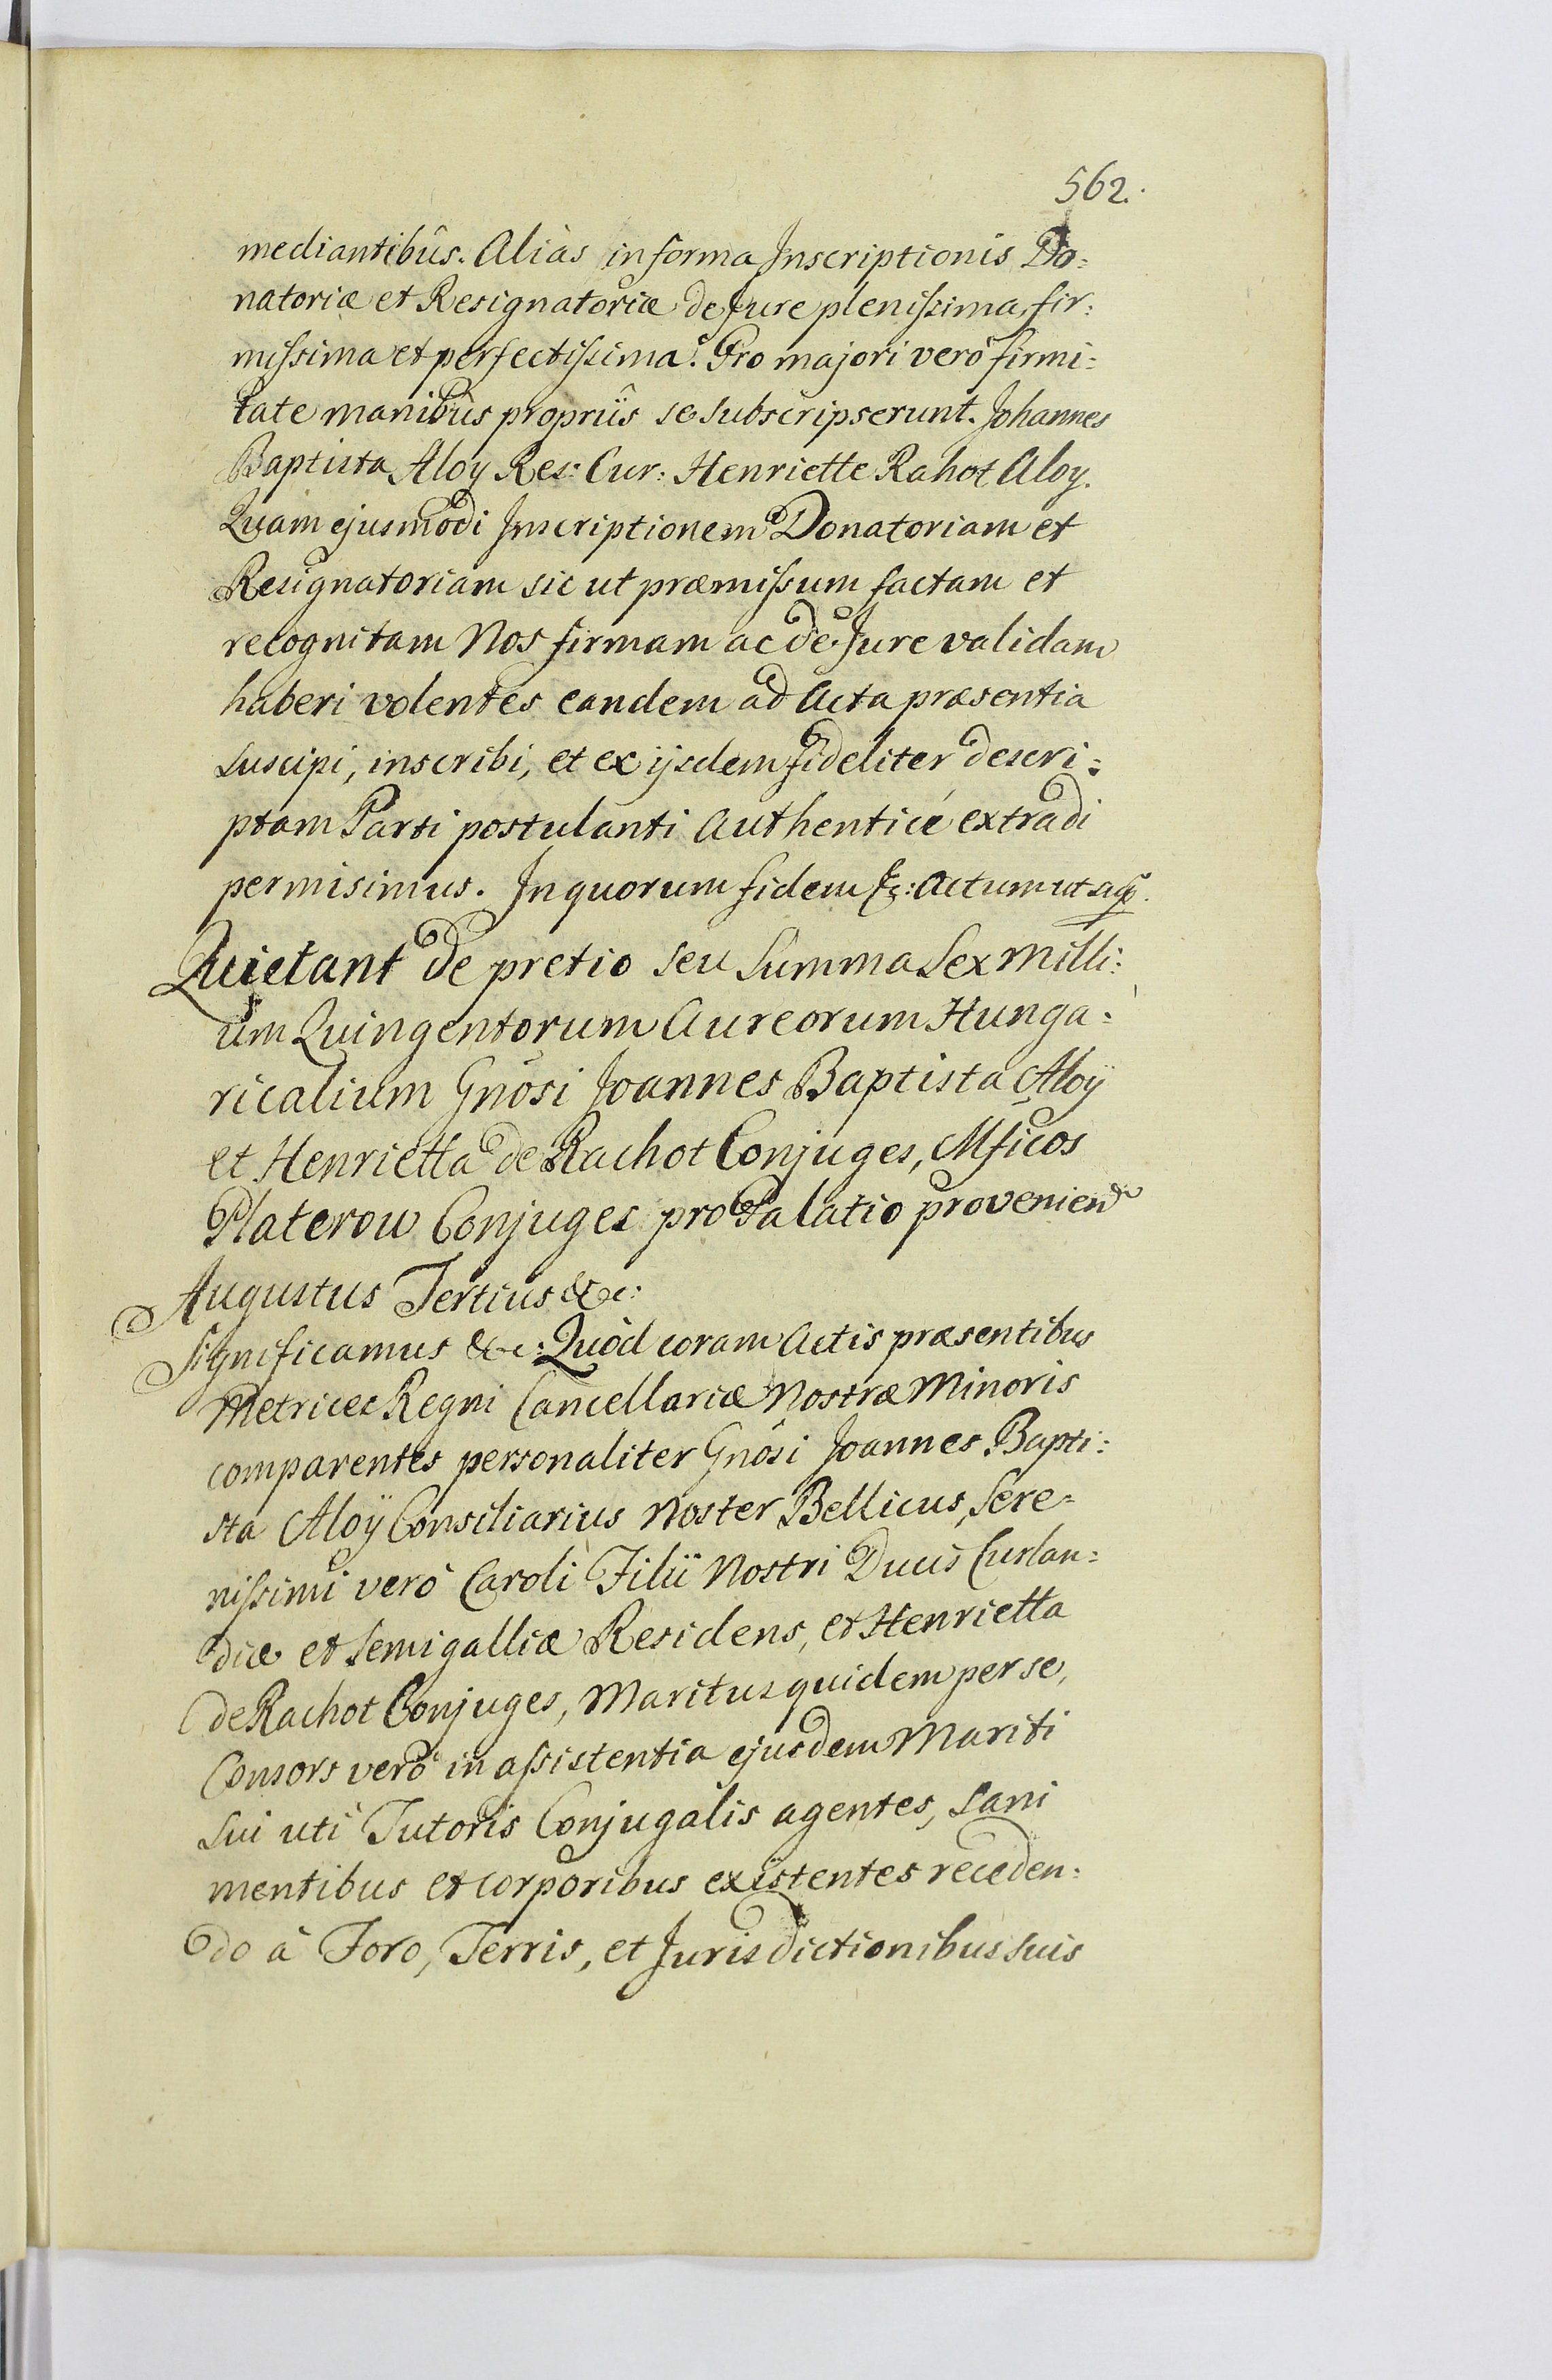 562.
mediantibûs. Aliàs in forma Inscriptionis Do:
natoriæ et Resignatoriæ de Jure plenissima, fir:
missima et perfectissima. Pro majori verò firmi:
tate manibûs proprÿs se subscripserunt. Johannes
Baptista Aloy Res: Cur: Henriette Rahot Aloy.
Quam ejusmodi Inscriptionem Donatoriam et
Resignatoriam sic ut præmissum factam et
recognitam Nos firmam ac de Jure validam
haberi volentes eandem ad Acta præsentia
suscipi, inscribi, et ex ijsdem fideliter descri:
ptam Parti postulanti Authenticé extradi
permisimus. In quorum fidem &: Actum ut sup.
Quietant de pretio seu Summa Sex Milli:
um Quingentorum Aureorum Hunga:
ricalium Gnosi Joannes Baptista Aloÿ
et Henrietta de Rachot Conjuges, Mficos
Platerow Conjuges pro Palatio provenien
Augustus Tertius &c:
Significamus &c: Quòd coram Actis præsentibus
Metrices Regni Cancellariæ Nostræ Minoris
comparentes personaliter Gnôsi Joannes Bapti:
sta Aloÿ Consiliarius Noster Bellicus, Sere=
nissimi verò Caroli Filii Nostri Ducis Curlan:
diæ et Semigalliæ Residens, et Henrietta
de Rachot Conjuges, Maritus quidem per se,
Consors verò in assistentia ejusdem Mariti
sui uti Tutoris Conjugalis agentes, sani
mentibus et corporibus existentes receden:
do à Foro, Terris, et Jurisdictionibus suis